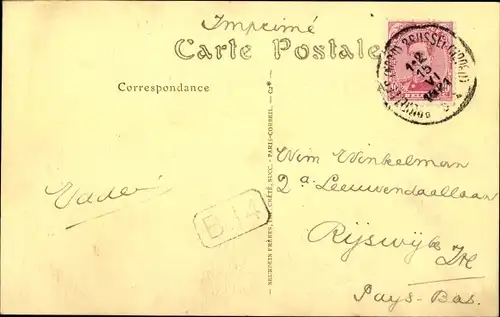 Imprimé
Carte Postale
Correspondance
Vader
B 14
NEURDEIN FRÈRES, IMP. CRÉTÉ, SUCC. - PARIS-CORBEIL. - Ce
1-2
15
VI
Wim Winkelman
2a Leeuwendaallaan
Rijswijk
ZH
Pays-Bas.